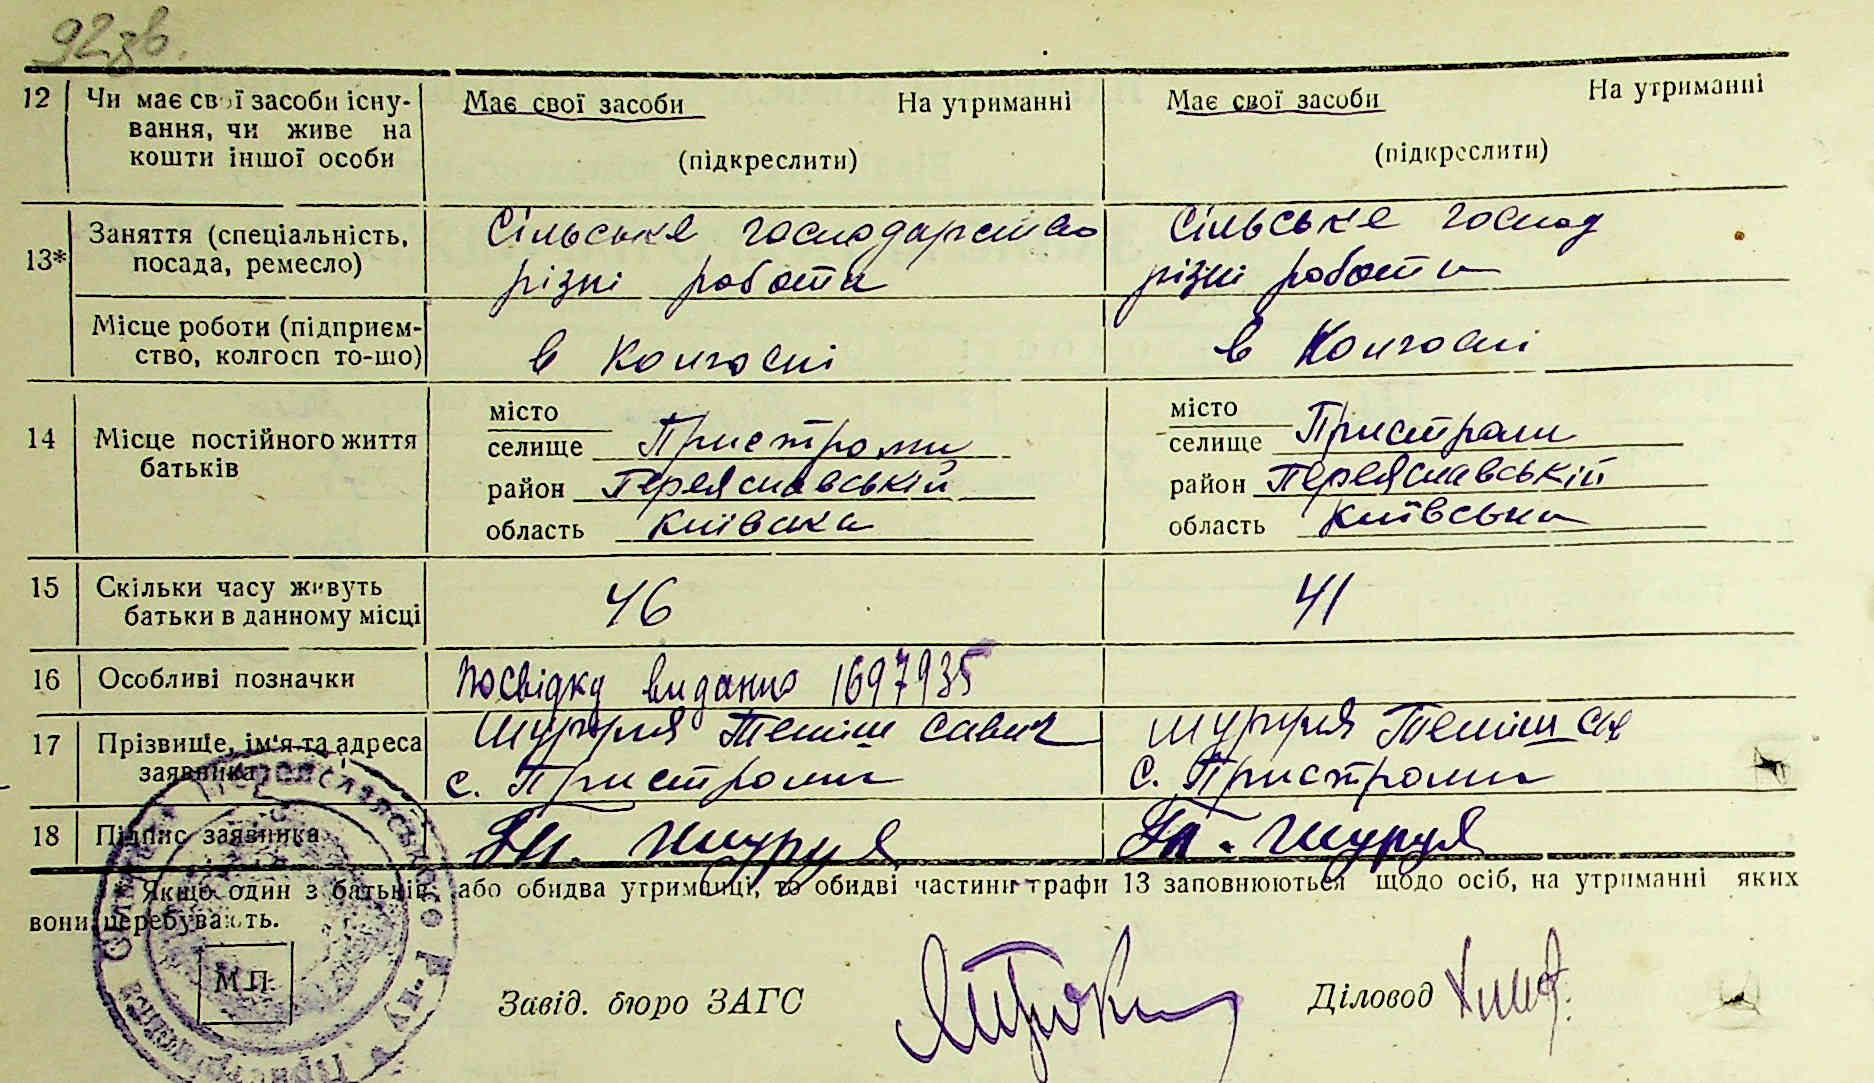 92зв.
12 Чи має свої засоби існу- Має свої засоби На утриманні Має свої засоби На утриманні
вання, чи живе на
кошти іншої особи (підкреслити) (підкреслити)
13* Заняття (спеціальність, Сільське господарство Сільське господ
посада, ремесло) різні роботи різні роботи
Місце роботи (підприєм-
ство, колгосп то-що) в колгоспі в колгоспі
14 Місце постійного життя місто місто
батьків селище Пристроми селище Пристроми
район Переяславській район Переяславській
область Київска область Київська
15 Скільки часу живуть 46 41
батьки в данному місці
16 Особливі позначки посвідку виданно 1697935
17 Прізвище, ім'я та адреса Шуруля Савич Шуруля
заявника с. Пристроми с. Пристроми
18 Підпис заявника Шуруля Шуруля
Якщо один з батьків, або обидва утриманці, то обидві частини графи 13 заповнюються щодо осіб, на утриманні яких
вони перебувають.
М.П.
Завід. бюро ЗАГС Діловод